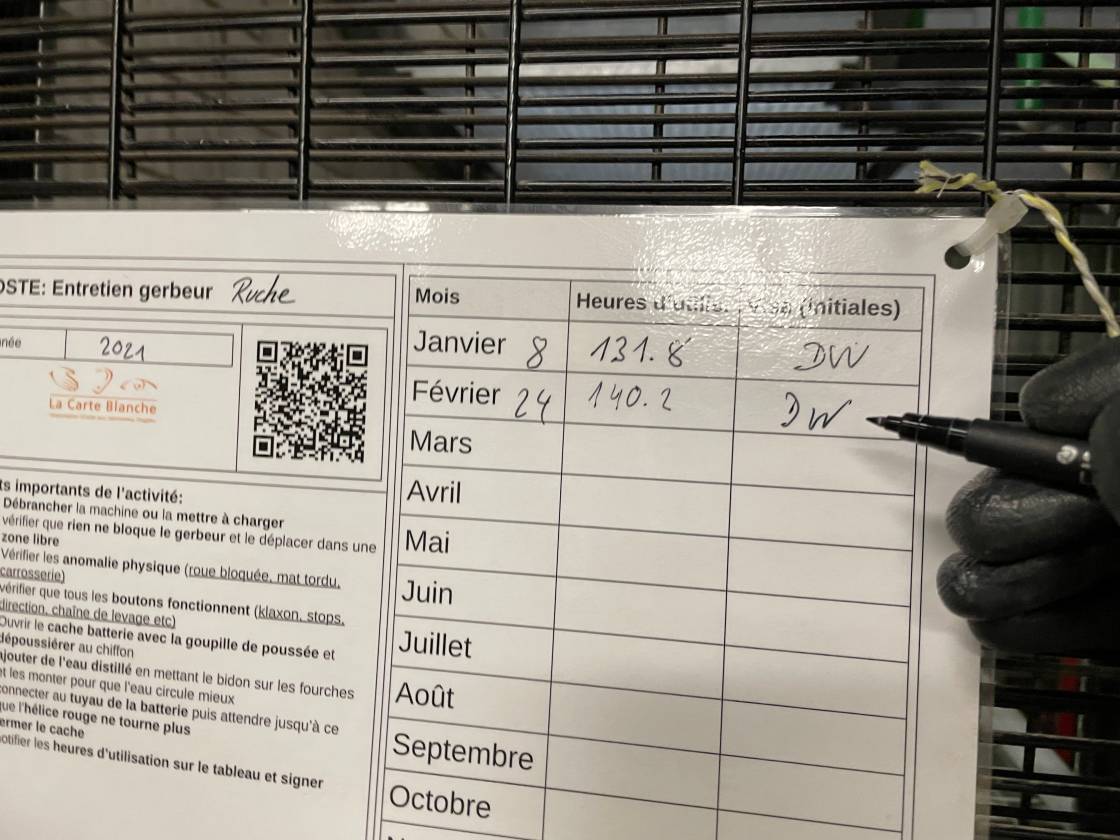 OSTE: Entretien gerbeur Ruche
née 2021
La Carte Blanche
ts importants de l'activité:
Débrancher la machine ou la mettre à charger
vérifier que rien ne bloque le gerbeur et le déplacer dans une
zone libre
Vérifier les anomalie physique (roue bloquée, mat tordu,
carrosserie)
vérifier que tous les boutons fonctionnent (klaxon, stops,
direction, chaîne de levage etc)
Ouvrir le cache batterie avec la goupille de poussée et
dépoussiérer au chiffon
ajouter de l'eau distillé en mettant le bidon sur les fourches
et les monter pour que l'eau circule mieux
connecter au tuyau de la batterie puis attendre jusqu'à ce
que l'hélice rouge ne tourne plus
ermer le cache
notifier les heures d'utilisation sur le tableau et signer
Mois Heures d'utilis. Visa (initiales)
Janvier 8 131.8 DW
Février 24 140.2 DW
Mars
Avril
Mai
Juin
Juillet
Août
Septembre
Octobre